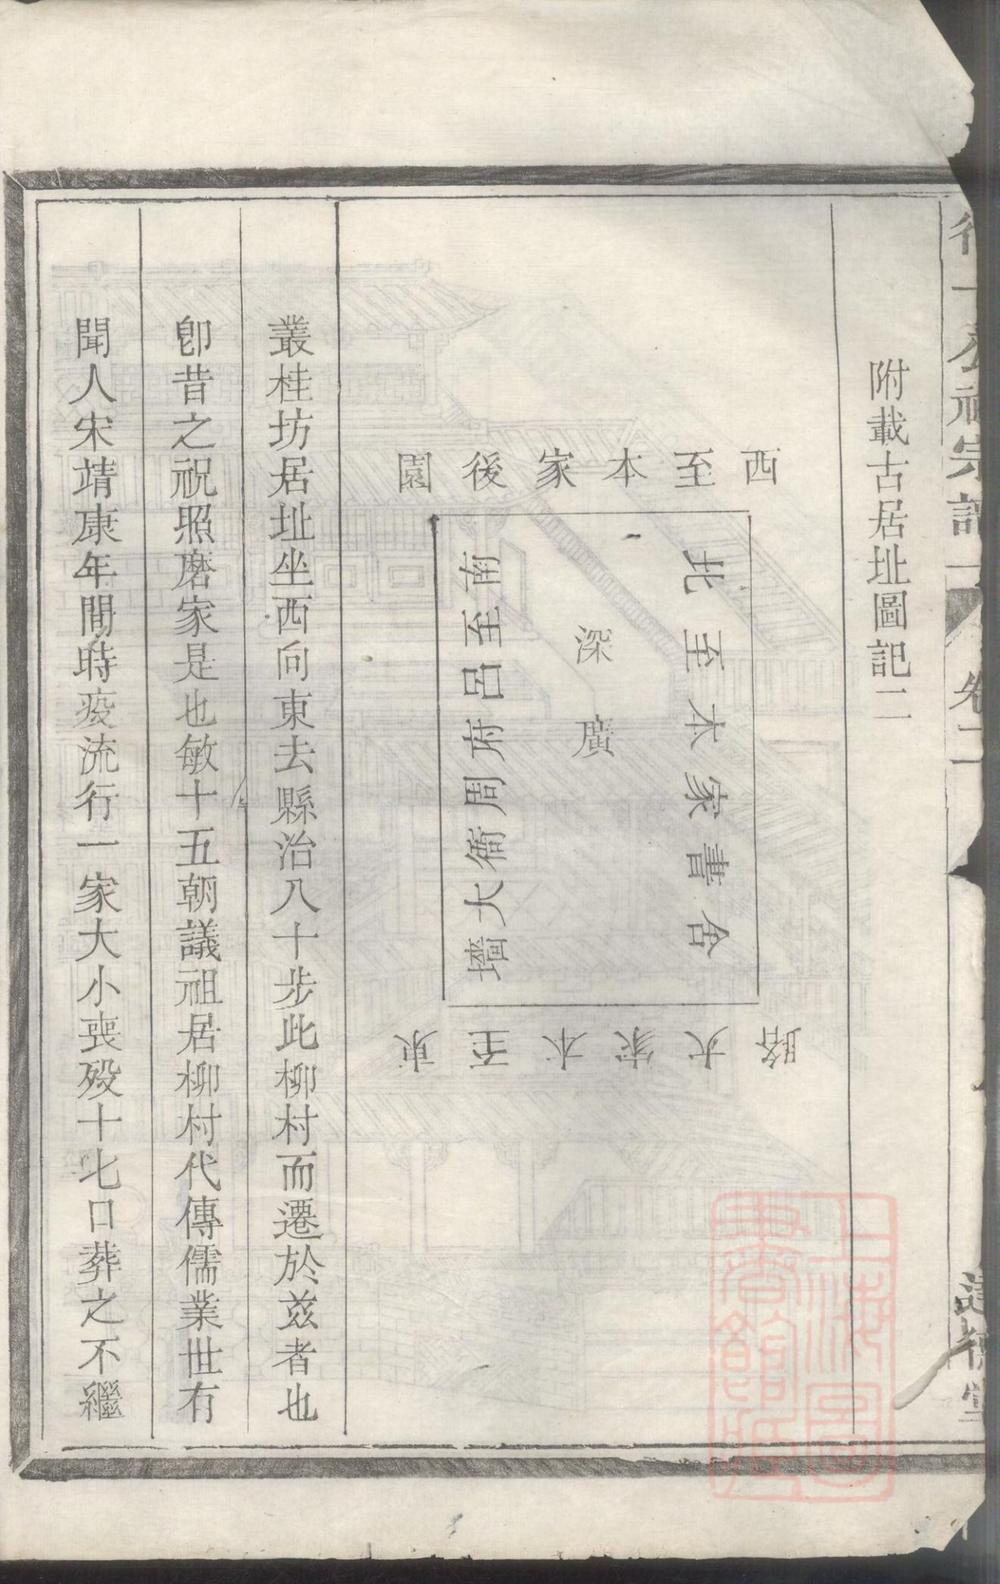 附載古居址圖記二
西至本家後園
北至本家書舍
深廣
南至呂府周衙大墻
東至本家大路
叢桂坊居址坐西向東去縣治八十步此柳村而遷於茲者也
卽昔之祝照磨家是也敏十五朝議祖居柳村代傳儒業世有
聞人宋靖康年間時疫流行一家大小喪殁十七口葬之不繼
宗譜
卷二
達德堂
上海圖書館藏